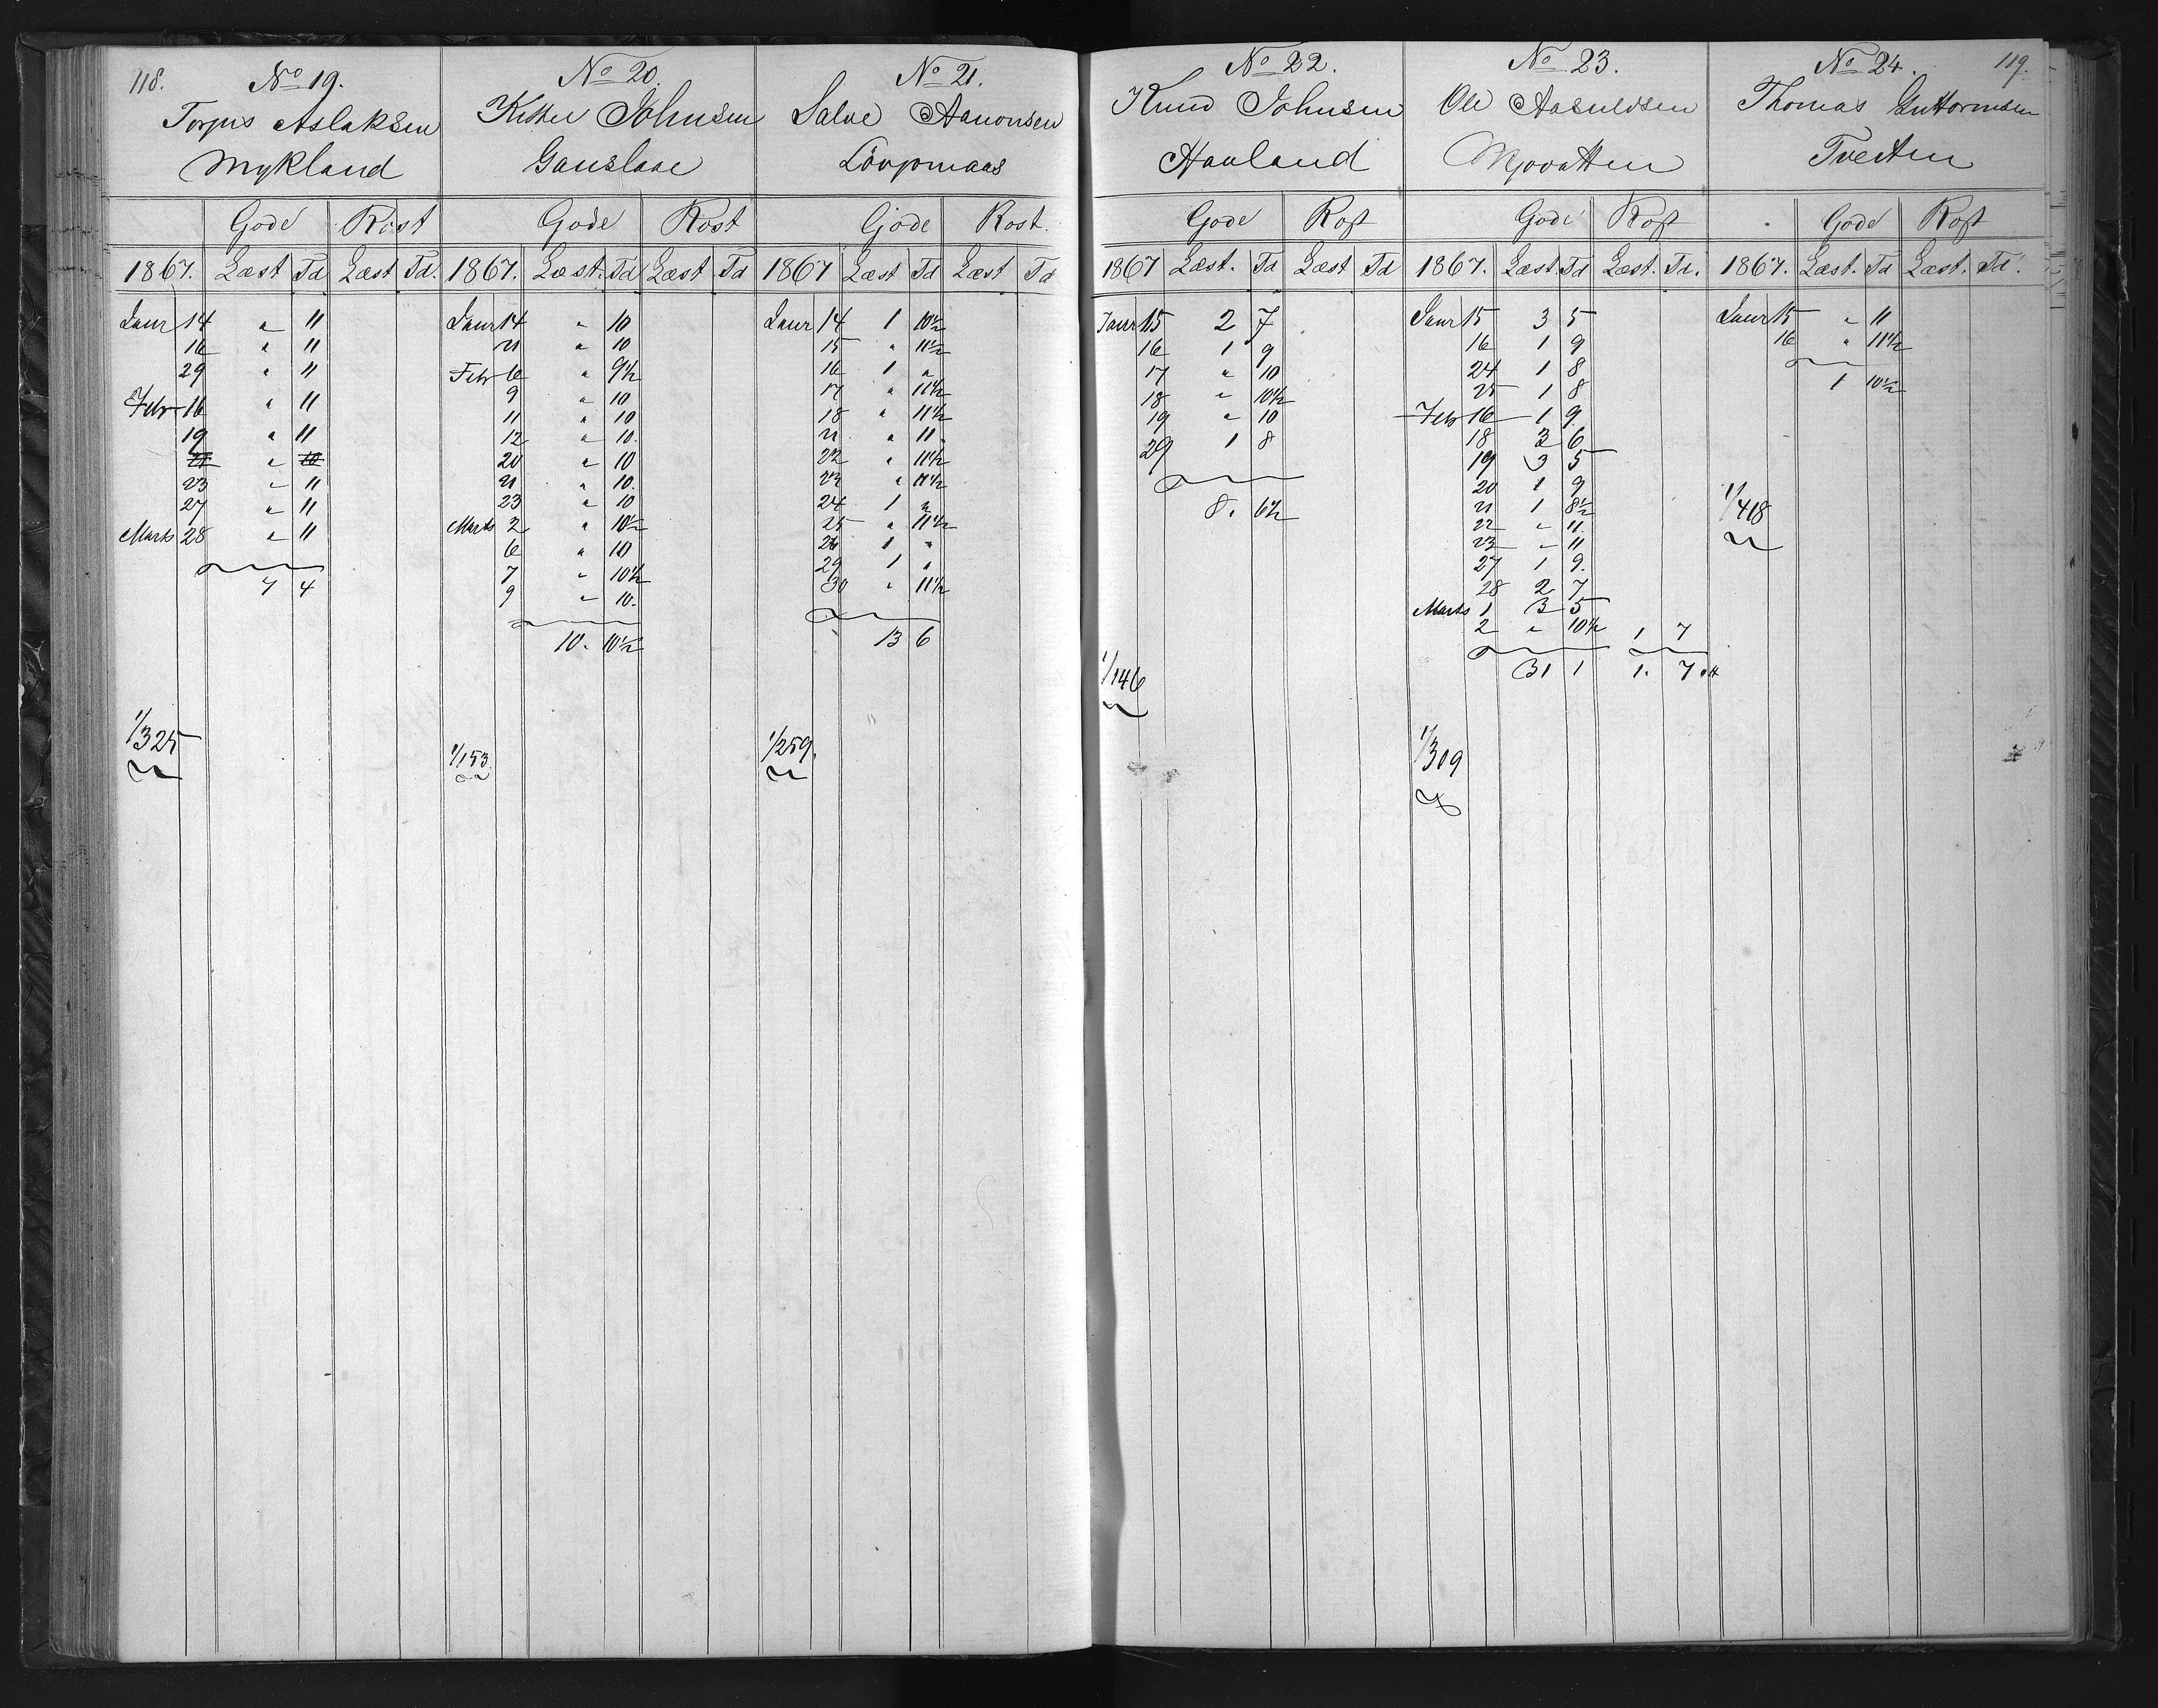 118.
No 19.
Torjus Aslaksen
Mykland
Gode Rost
1867. Læst Td Læst Td.
Janr 14 " 11
16 " 11
29 " 11
Febr 16 " 11
19 " 11
21 " 10
23 " 11
27 " 11
Marts 28 " 11
7 4
1/325
No 20.
Johnsen
Gauslaae
Gode Rost
1867. Læst. Td Læst Td
Janr 14 " 10
21 " 10
Febr 6 " 9½
9 " 10
11 " 10
12 " 10.
20 " 10
21 " 10.
23 " 10
Marts 2 " 10½
6 " 10
7 " 10½
9 " 10.
10. 10½
1/153.
No 21.
Salve Aanonsen
Løvjomaas
Gode Rost.
1867 Læst Td Læst Td
Janr 14 1 10½
15 " 11½
16 1 "
17 " 11½
18 " 11½
21 " 11
22 " 11½
23 " 11½
24 1 "
25 " 11½
26 1 "
29 1 "
30 " 11½
13 6
1/259.
No 22.
Knud Johnsen
Hauland
Gode Rost
1867 Læst. Td Læst Td
Janr 15 2 7
16 1 9
17 " 10
18 " 10½
19 " 10
29 1 8
8. 6½
1/146
No 23.
Ole Aasuldsen
Mjovatten
Gode Rost
1867. Læst. Td Læst. Td.
Janr 15 3 5
16 1 9
24 1 8
25 1 8
Febr 16 1 9.
18 3 6
19 3 5
20 1 9
21 1 8½
22 " 11
23 " 11
27 1 9.
28 2 7
Marts 1 3 5
2 " 10½ 1 7
31 1 1. 7
1/309
119.
No 24.
Thomas Guttormsen
Tveiten
Gode Rost
1867. Læst. Td Læst. Td.
Janr 15 " 11
16 " 11½
1 10½
1/418